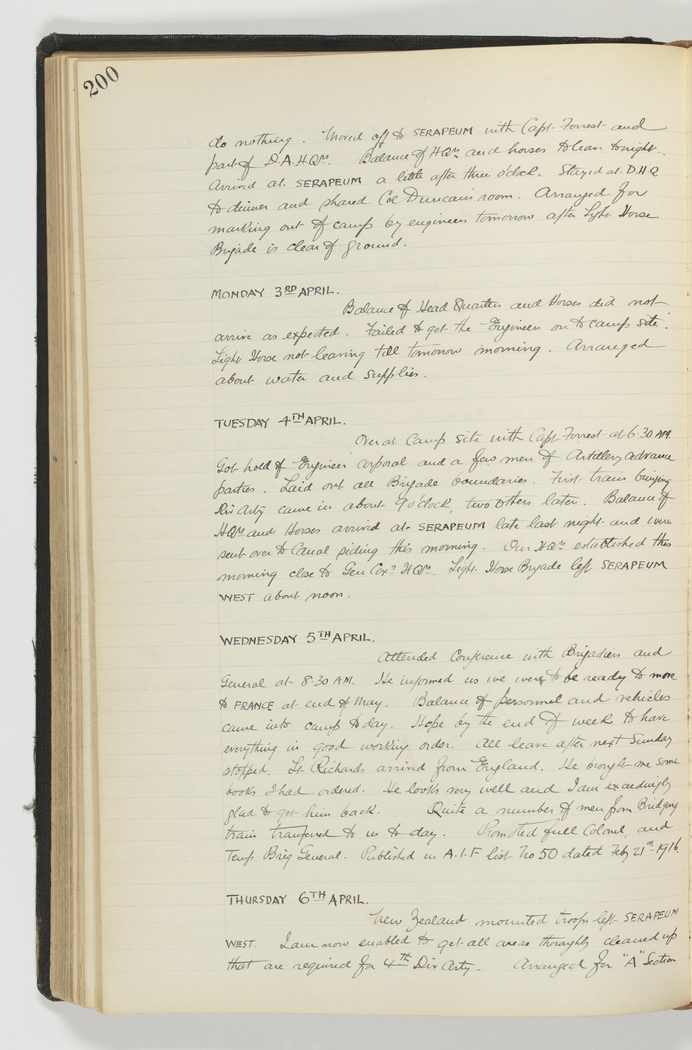 200
do nothing. Moved off to SERAPEUM with Capt. Forrest and
part of D.A.HQrs. Balance of HQrs and horses to leave tonight.
Arrived at SERAPEUM a little after three o'clock. Stayed at D.H.Q
to dinner and shared Col Duncan's room. Arranged for
marking out of camp by engineers tomorrow after Light Horse
Brigade is clear of ground.
MONDAY 3RD APRIL.
Balance of Head Quarters and Horses did not
arrive as expected. Failed to get the Engineers on to camp site.
Light Horse not leaving till tomorrow morning. Arranged
about water and supplies.
TUESDAY 4TH APRIL.
Over at Camp site with Capt. Forrest at 6.30 AM.
Got hold of Engineer corporal and a few men of Artillery advance
parties. Laid out all Brigade boundaries. First train bringing
Div Arty came in about 9 o'clock, two others later. Balance of
HQrs and Horses arrived at SERAPEUM late last night and were
sent over to Canal siding this morning. Our HQrs established this
morning close to Gen Cox's HQrs. Light Horse Brigade left SERAPEUM
WEST about noon.
WEDNESDAY 5TH APRIL.
Attended Conference with Brigadiers and
General at 8.30 AM. He informed us we were to be ready to move
to FRANCE at end of May. Balance of personnel and vehicles
came into camp to day. Hope by the end of week to have
everything in good working order. All leave after next Sunday
stopped. Lt Richards arrived from England. He brought me some
books I had ordered. He looks very well and I am exceedingly
glad to get him back. Quite a number of men from Bridging
train transferred to us to day. Promoted full Colonel, and
Temp Brig General. Published in A.I.F list No 50 dated Feby 21st 1916.
THURSDAY 6TH APRIL.
New Zealand mounted troops left SERAPEUM
WEST. I am now enabled to get all areas thoroughly cleaned up
that are required for 4th Div Arty. Arranged for "A" Section